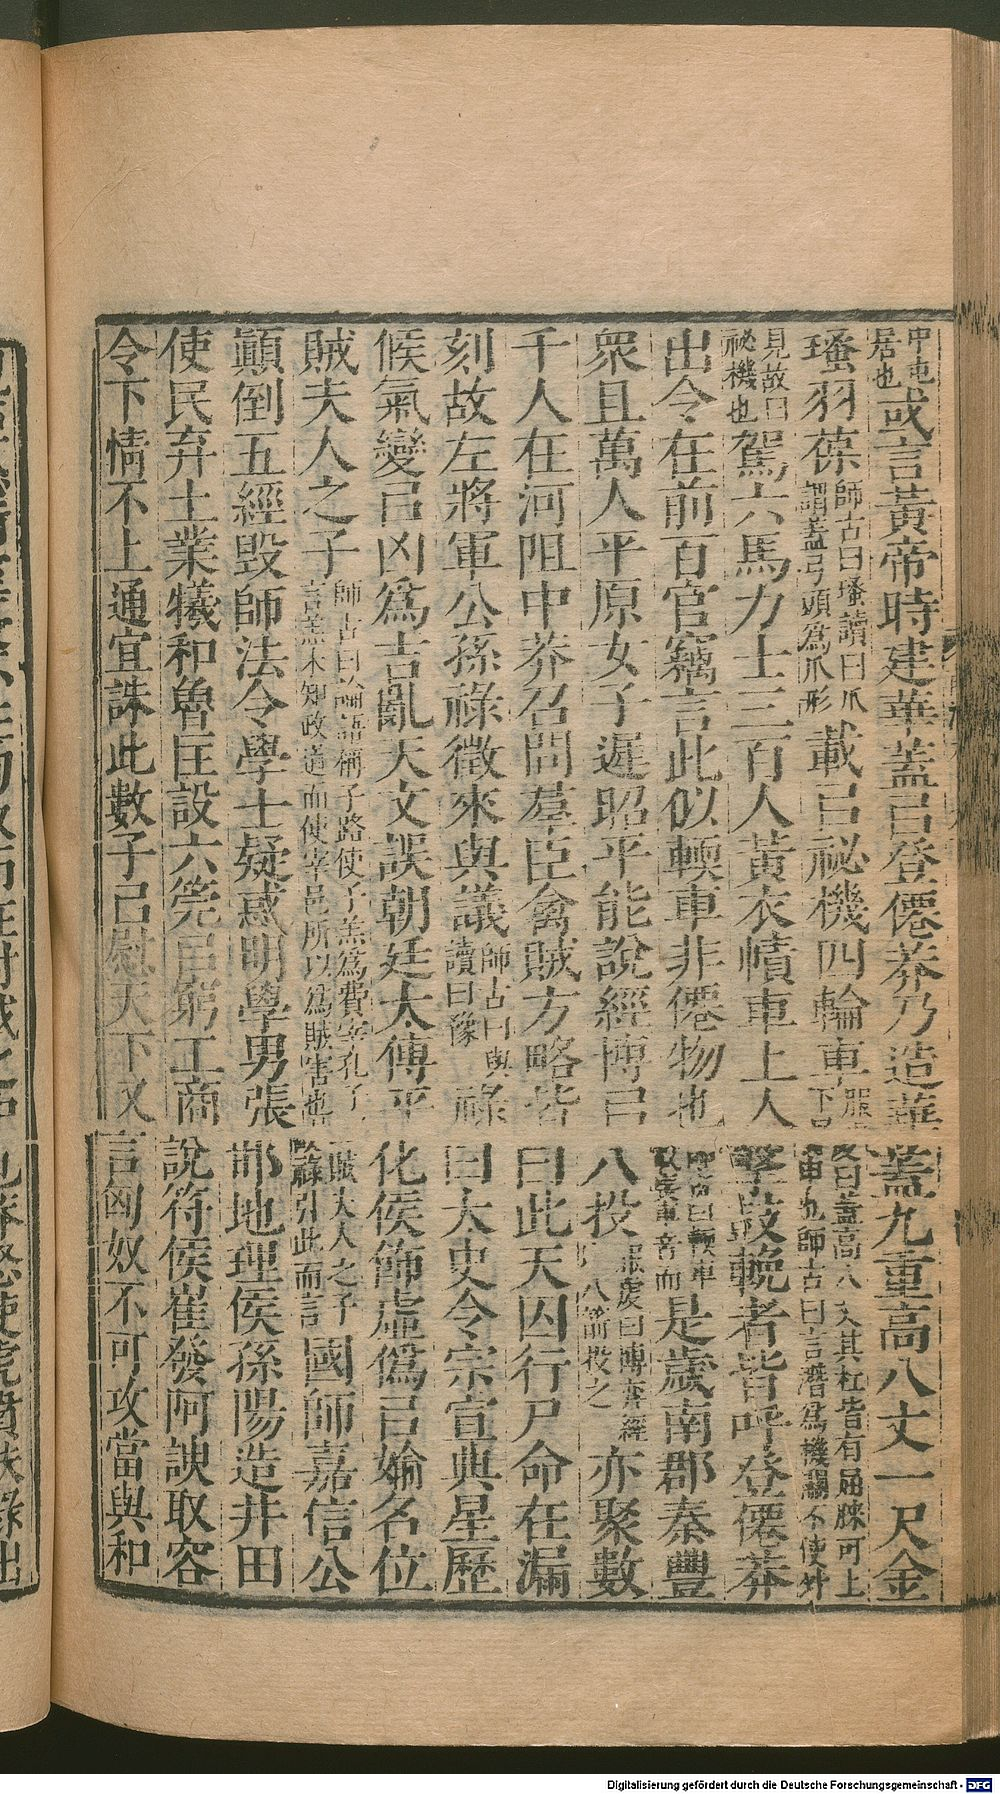 中屯居也或言黃帝時建華蓋㠯登僊莽乃造華蓋九重高八丈一尺金
瑵羽葆師古曰瑵讀曰爪謂蓋弓頭爲爪形載㠯祕機四輪車服虔曰蓋高八丈其杠皆有屈膝可上下屈申也師古曰言潛爲機關不使外
見故曰祕機也駕六馬力士三百人黃衣幘車上人擊鼓輓者皆呼登僊莽
出令在前百官竊言此似輭車非僊物也師古曰輭車以載喪音而是歲南郡秦豐
衆且萬人平原女子遲昭平能說經博㠯八投服虔曰博弈經以八箭投之亦聚數
千人在河阻中莽召問羣臣禽賊方略皆曰此天囚行尸命在漏
刻故左將軍公孫祿徵來與議師古曰與讀曰豫祿曰太史令宗宣典星歷
候氣變㠯凶爲吉亂天文誤朝廷太傅平化侯飾虛僞㠯婾名位
賊夫人之子師古曰論語稱子路使子羔爲費宰孔子曰賊夫人之子言羔未知政道而使宰邑所以爲賊害也故祿引此而言國師嘉信公
顚倒五經毀師法令學士疑惑明學男張邯地理侯孫陽造井田
使民弃土業犧和魯匡設六筦㠯窮工商說符侯崔發阿諛取容
令下情不上通宜誅此數子㠯慰天下又言匈奴不可攻當與和
Digitalisierung gefördert durch die Deutsche Forschungsgemeinschaft - DFG